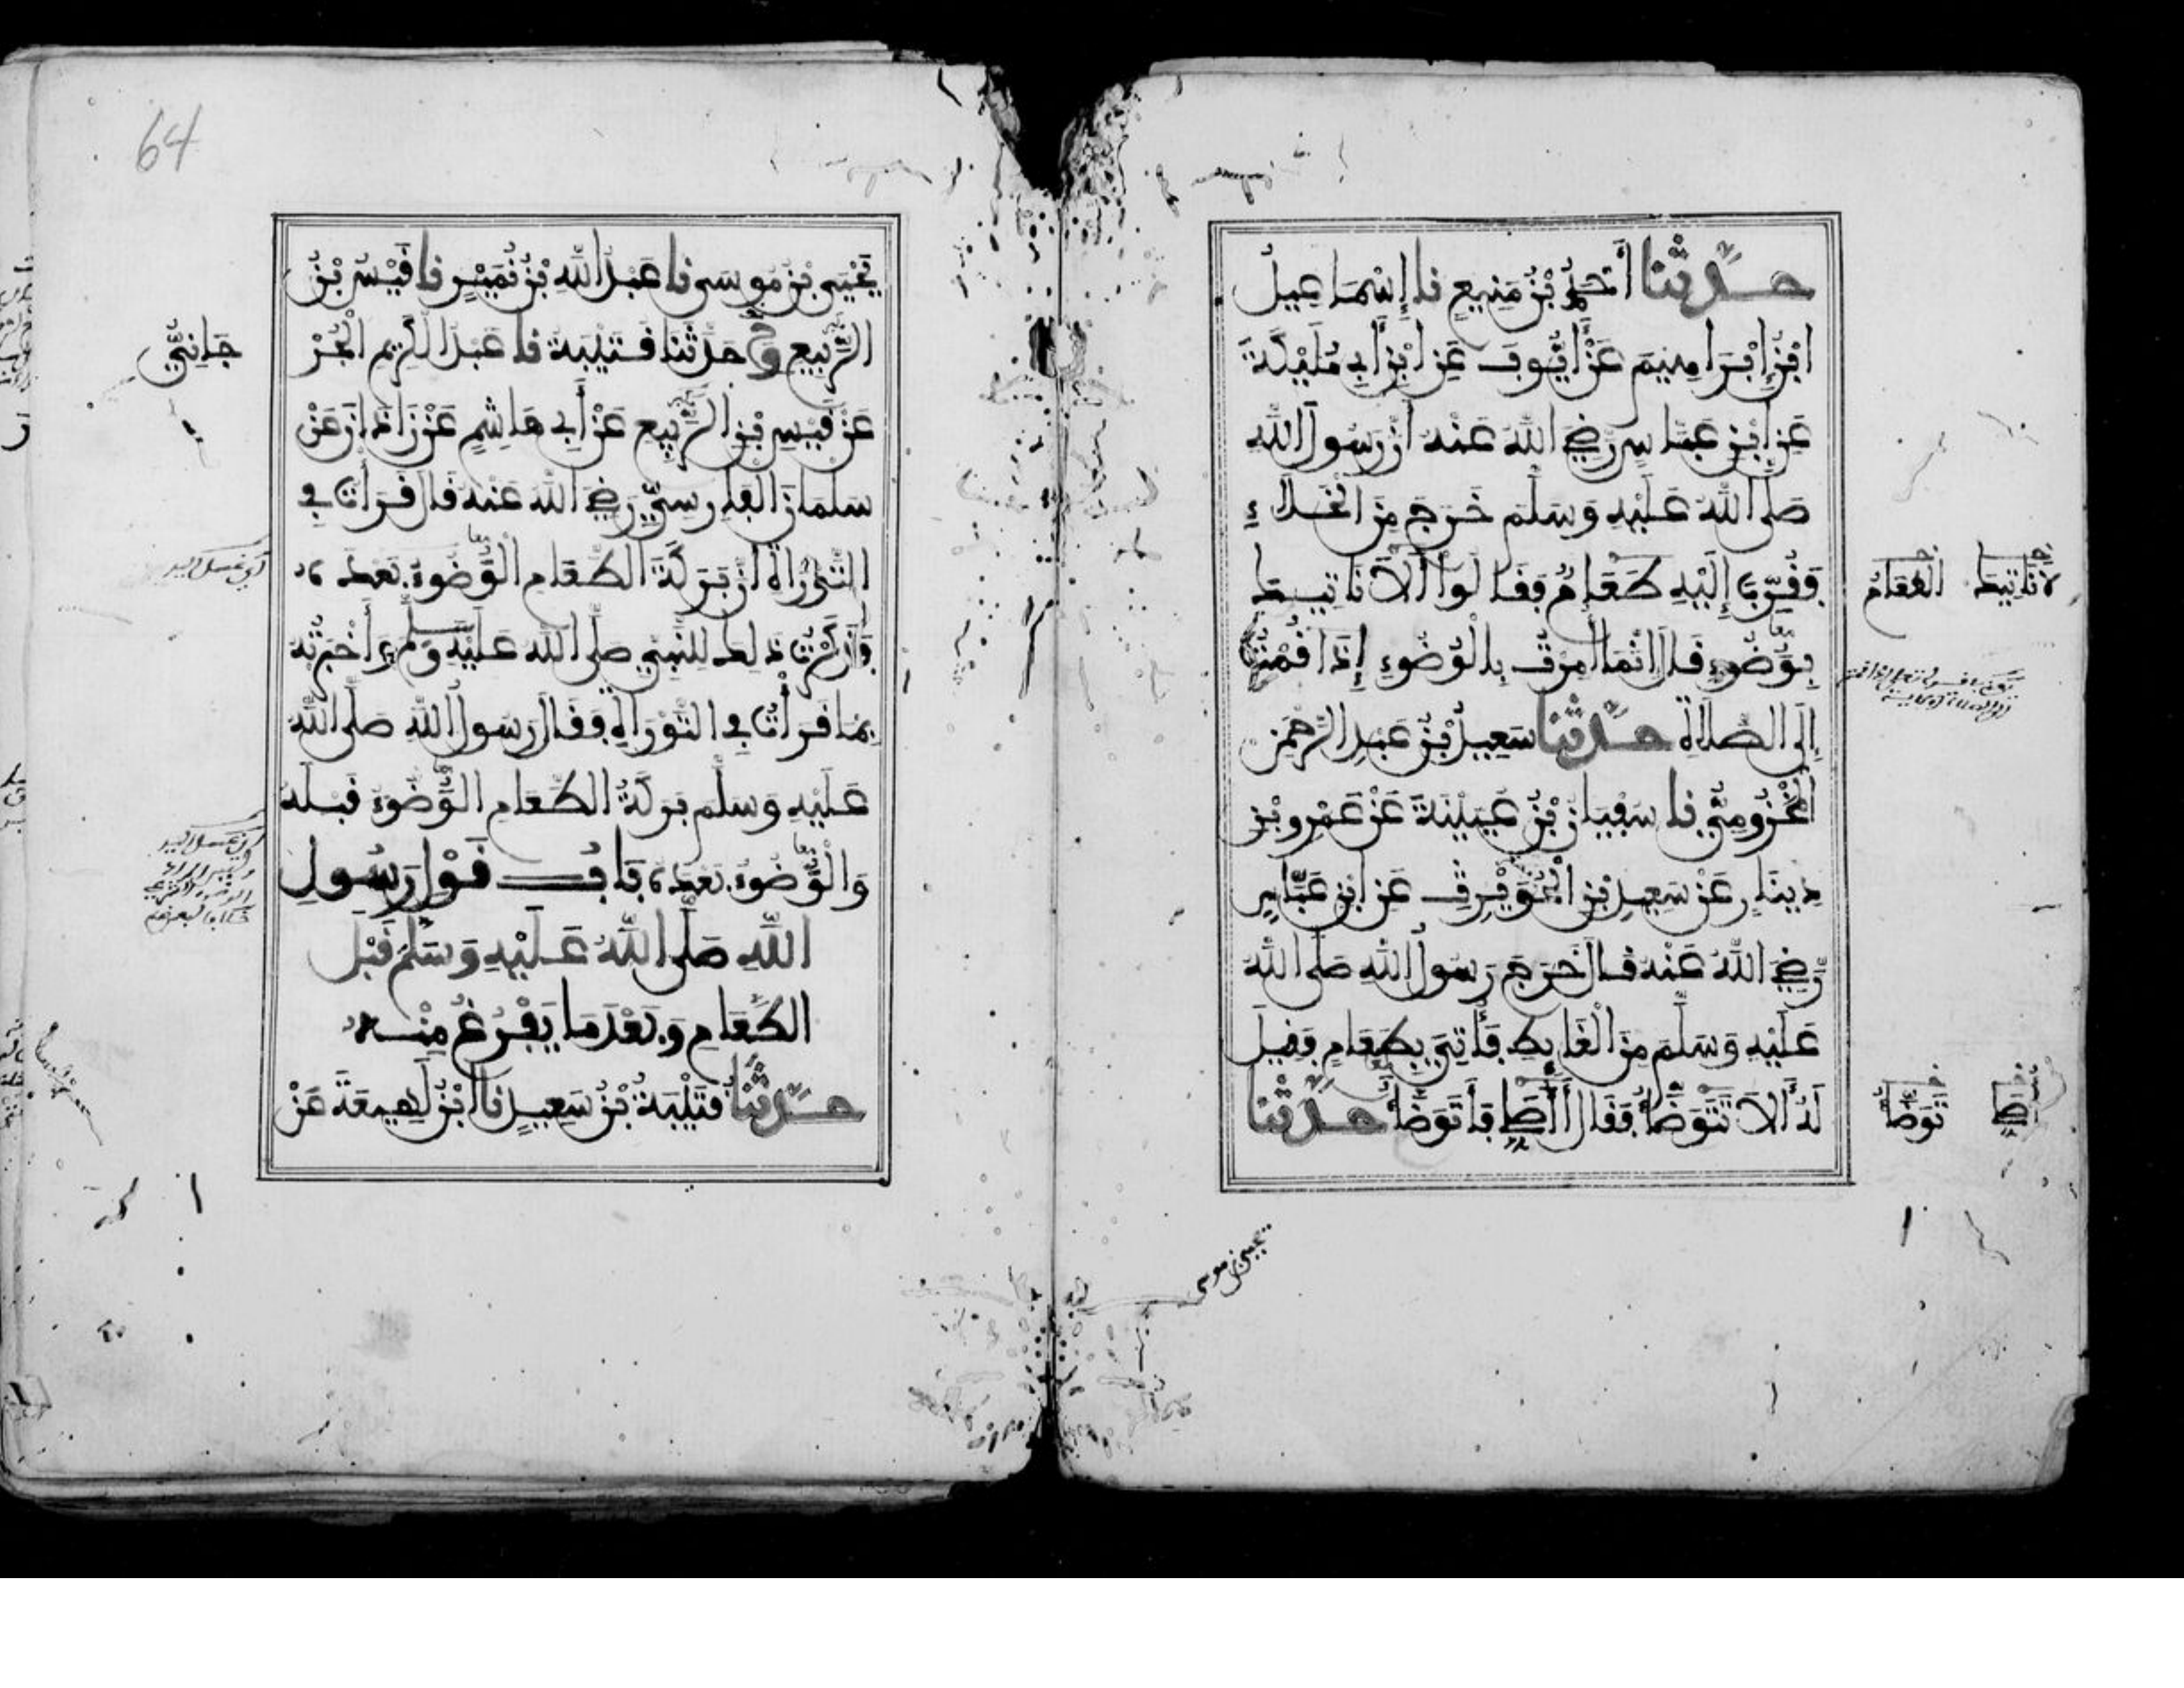 حَدَّثَنَا أَحْمَدُ بْنُ مَنِيعٍ نا إِسْمَاعِيلُ
ابْنُ إِبْرَاهِيمَ عَنْ أَيُّوبَ عَنِ ابْنِ أَبِي مُلَيْكَةَ
عَنِ ابْنِ عَبَّاسٍ رَضِيَ اللَّهُ عَنْهُ أَنَّ رَسُولَ اللَّهِ
صَلَّى اللَّهُ عَلَيْهِ وَسَلَّمَ خَرَجَ مِنَ الْخَلَاءِ
فَقُرِّبَ إِلَيْهِ طَعَامٌ فَقَالُوا أَلَا نَاتِيكَ
بِوَضُوءٍ قَالَ إِنَّمَا أُمِرْتُ بِالْوُضُوءِ إِذَا قُمْتُ
إِلَى الصَّلَاةِ حَدَّثَنَا سَعِيدُ بْنُ عَبْدِ الرَّحْمَنِ
الْمَخْزُومِيُّ نا سُفْيَانُ بْنُ عُيَيْنَةَ عَنْ عَمْرِو بْنِ
دِينَارٍ عَنْ سَعِيدِ بْنِ الْحُوَيْرِثِ عَنِ ابْنِ عَبَّاسٍ
رَضِيَ اللَّهُ عَنْهُ قَالَ خَرَجَ رَسُولُ اللَّهِ صَلَّى اللَّهُ
عَلَيْهِ وَسَلَّمَ مِنَ الْغَائِطِ فَأُتِيَ بِطَعَامٍ فَقِيلَ
لَهُ أَلَا تَتَوَضَّأُ فَقَالَ أَأُصَلِّي فَأَتَوَضَّأُ حَدَّثَنَا
لَا نَاتِيكَ
الطَّعَامُ
تَوَضَّأُ
يحيى بن موسى
64
يَحْيَى بْنُ مُوسَى نا عَبْدُ اللَّهِ بْنُ نُمَيْرٍ نا قَيْسُ بْنُ
الرَّبِيعِ ح وَحَدَّثَنَا قُتَيْبَةُ نا عَبْدُ الْكَرِيمِ الْجُرْ
جَانِيُّ
عَنْ قَيْسِ بْنِ الرَّبِيعِ عَنْ أَبِي هَاشِمٍ عَنْ زَاذَانَ عَنْ
سَلْمَانَ الْفَارِسِيِّ رَضِيَ اللَّهُ عَنْهُ قَالَ قَرَأْتُ فِي
التَّوْرَاةِ أَنَّ بَرَكَةَ الطَّعَامِ الْوُضُوءُ بَعْدَهُ
فَذَكَرْتُ ذَلِكَ لِلنَّبِيِّ صَلَّى اللَّهُ عَلَيْهِ وَسَلَّمَ وَأَخْبَرْتُهُ
بِمَا قَرَأْتُ فِي التَّوْرَاةِ فَقَالَ رَسُولُ اللَّهِ صَلَّى اللَّهُ
عَلَيْهِ وَسَلَّمَ بَرَكَةُ الطَّعَامِ الْوُضُوءُ قَبْلَهُ
وَالْوُضُوءُ بَعْدَهُ بَابُ قَوْلِ رَسُولِ
اللَّهِ صَلَّى اللَّهُ عَلَيْهِ وَسَلَّمَ قَبْلَ
الطَّعَامِ وَبَعْدَمَا يَفْرُغُ مِنْهُ
حَدَّثَنَا قُتَيْبَةُ بْنُ سَعِيدٍ نا ابْنُ لَهِيعَةَ عَنْ
أي غسل اليد